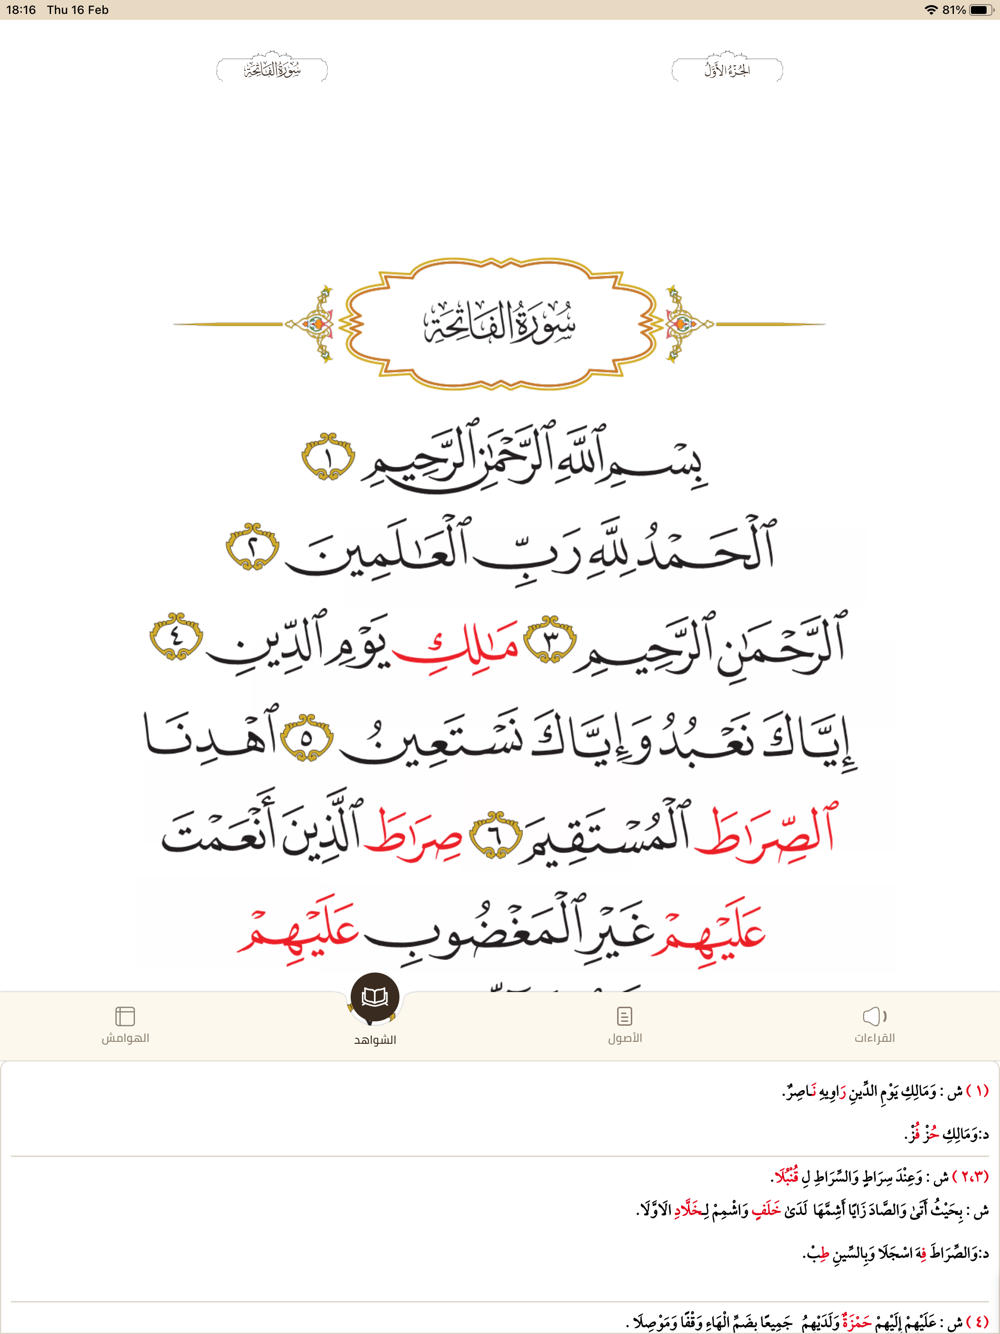 18:16 Thu 16 Feb 81%
الجُزْءُ الأَوَّلُ
سُورَةُ الفَاتِحَةِ
سُورَةُ الفَاتِحَةِ
بِسْمِ ٱللَّهِ ٱلرَّحْمَٰنِ ٱلرَّحِيمِ ١
ٱلْحَمْدُ لِلَّهِ رَبِّ ٱلْعَٰلَمِينَ ٢
ٱلرَّحْمَٰنِ ٱلرَّحِيمِ ٣ مَٰلِكِ يَوْمِ ٱلدِّينِ ٤
إِيَّاكَ نَعْبُدُ وَإِيَّاكَ نَسْتَعِينُ ٥ ٱهْدِنَا
ٱلصِّرَٰطَ ٱلْمُسْتَقِيمَ ٦ صِرَٰطَ ٱلَّذِينَ أَنْعَمْتَ
عَلَيْهِمْ غَيْرِ ٱلْمَغْضُوبِ عَلَيْهِمْ
القراءات الأصول الشواهد الهوامش
(١) ش : وَمَالِكِ يَوْمِ الدِّينِ رَاوِيهِ نَاصِرٌ.
د:وَمَالِكِ حُزْ فُزْ.
(٢،٣) ش : وَعِنْدَ سِرَاطِ وَالسِّرَاطِ لِ قُنْبُلَا.
ش : بِحَيْثُ أَتَىٰ وَالصَّادَ زَايًا أَشِمَّهَا لَدَىٰ خَلَفٍ وَاشْمِمْ لِخَلَّادِ الَاوَّلَا.
د:وَالصِّرَاطَ فِهَ اسْجَلَا وَبِالسِّينِ طِبْ.
(٤) ش : عَلَيْهِمْ إِلَيْهِمْ حَمْزَةٌ وَلَدَيْهِمُ جَمِيعًا بِضَمِّ الْهَاءِ وَقْفًا وَمَوْصِلَا .